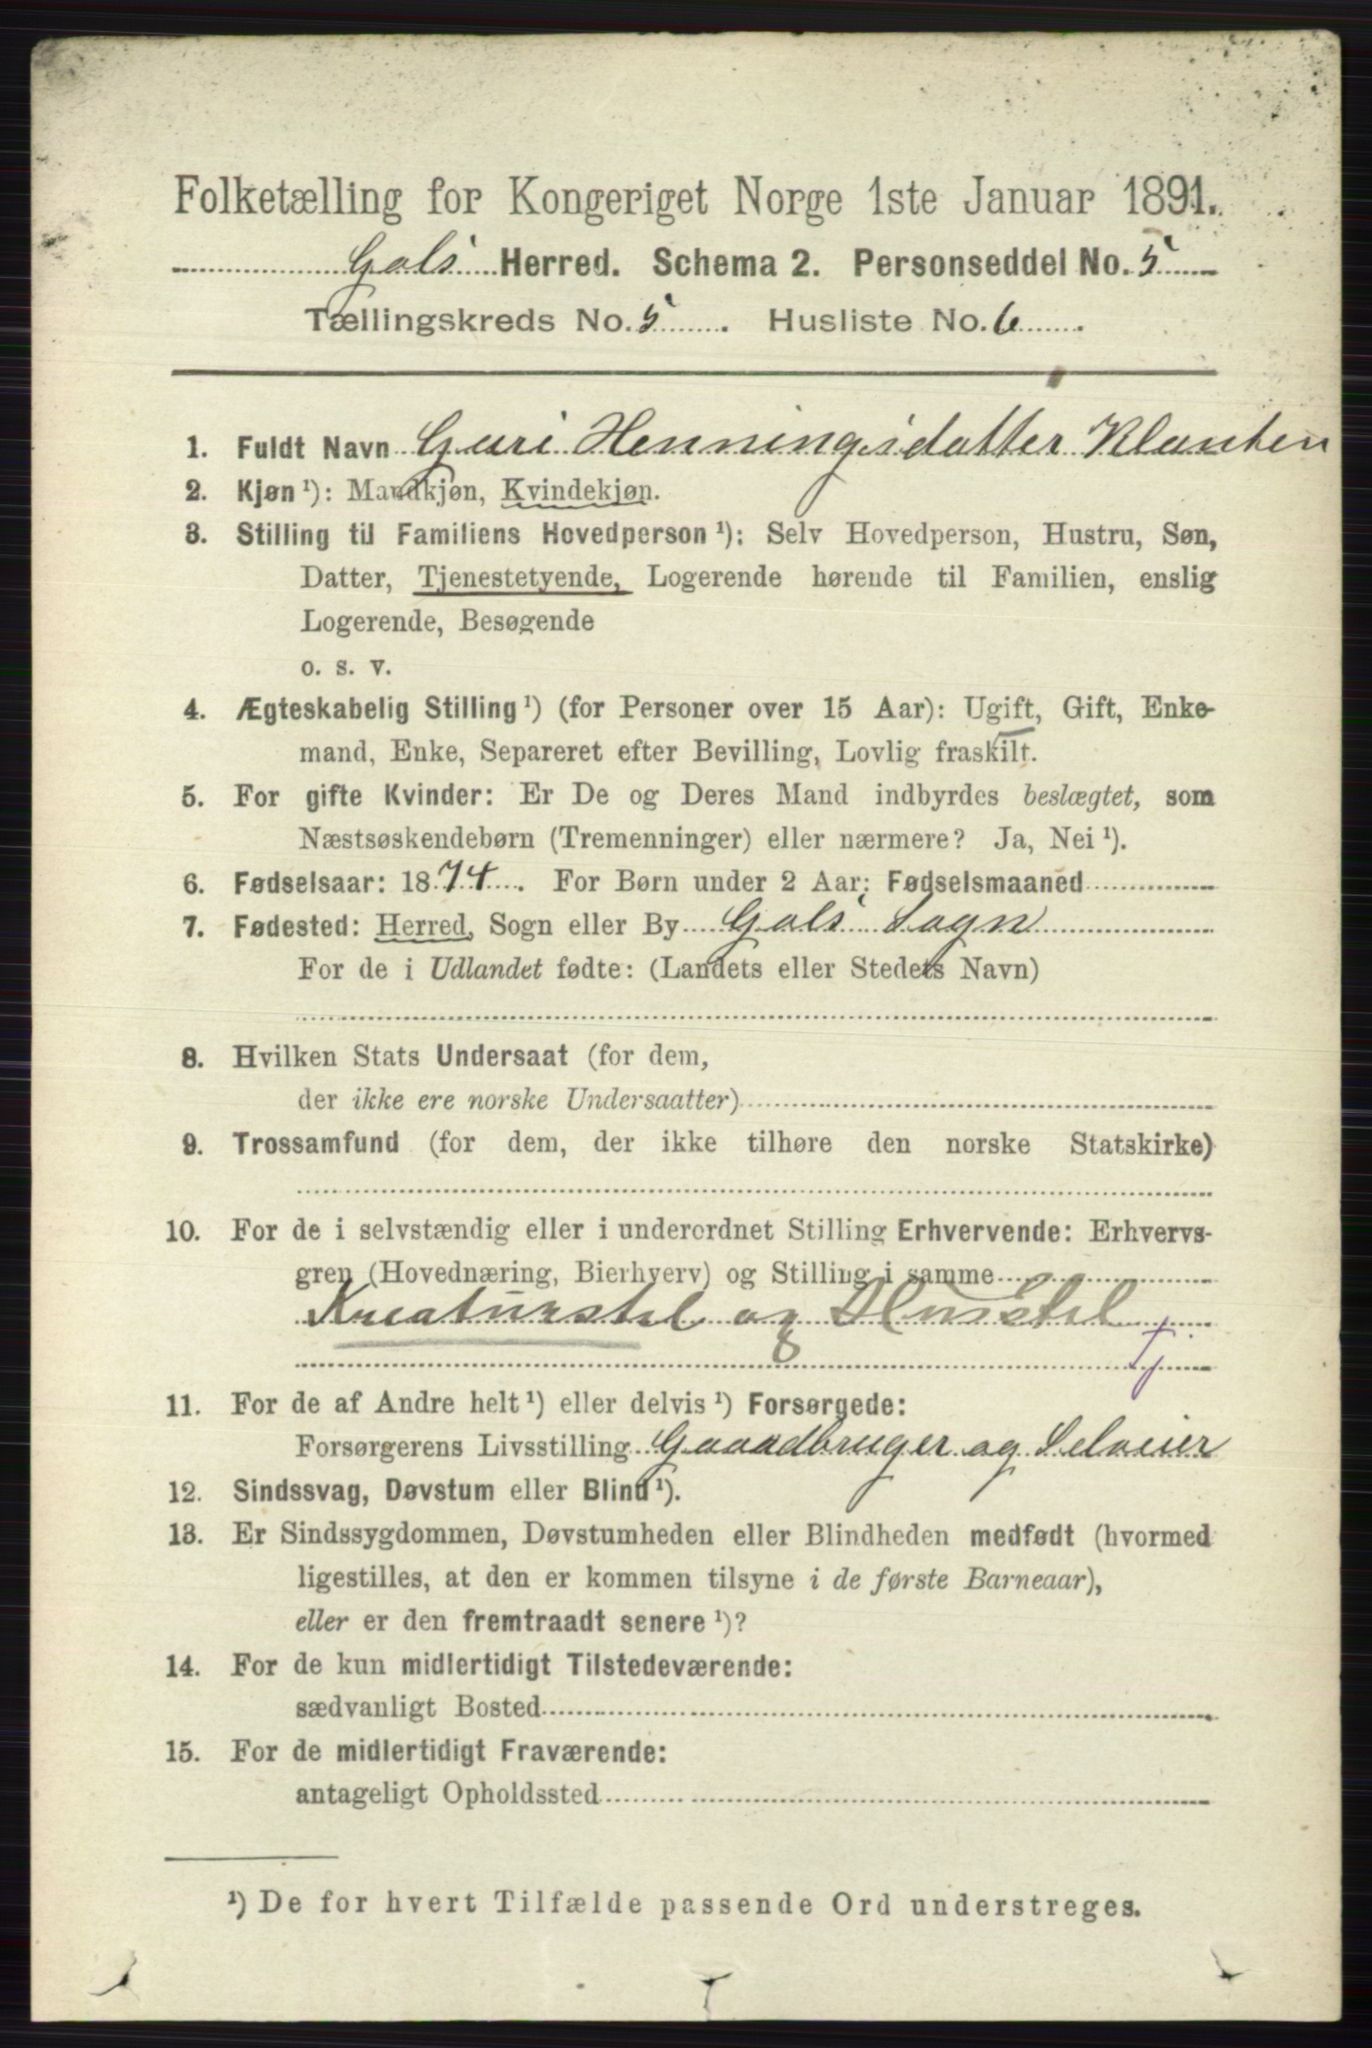 Folketælling for Kongeriget Norge 1ste Januar 1891.
Gols Herred. Schema 2. Personseddel No. 5
Tællingskreds No. 5. Husliste No. 6.
1. Fuldt Navn Guri Henningsdatter Klanten
2. Kjøn ¹): Mandkjøn, Kvindekjøn.
3. Stilling til Familiens Hovedperson ¹): Selv Hovedperson, Hustru, Søn,
Datter, Tjenestetyende, Logerende hørende til Familien, enslig
Logerende, Besøgende
o. s. v.
4. Ægteskabelig Stilling ¹) (for Personer over 15 Aar): Ugift, Gift, Enke-
mand, Enke, Separeret efter Bevilling, Lovlig fraskilt.
5. For gifte Kvinder: Er De og Deres Mand indbyrdes beslægtet, som
Næstsøskendebørn (Tremenninger) eller nærmere? Ja, Nei ¹).
6. Fødselsaar: 1874. For Børn under 2 Aar: Fødselsmaaned
7. Fødested: Herred, Sogn eller By Gols Sogn
For de i Udlandet fødte: (Landets eller Stedets Navn)
8. Hvilken Stats Undersaat (for dem,
der ikke ere norske Undersaatter)
9. Trossamfund (for dem, der ikke tilhøre den norske Statskirke)
10. For de i selvstændig eller i underordnet Stilling Erhvervende: Erhvervs-
gren (Hovednæring, Bierhverv) og Stilling i samme
Kreaturstel og Husstel
tj
11. For de af Andre helt ¹) eller delvis ¹) Forsørgede:
Forsørgerens Livsstilling Gaardbruger og Selveier
12. Sindssvag, Døvstum eller Blind ¹).
13. Er Sindssygdommen, Døvstumheden eller Blindheden medfødt (hvormed
ligestilles, at den er kommen tilsyne i de første Barneaar),
eller er den fremtraadt senere ¹)?
14. For de kun midlertidigt Tilstedeværende:
sædvanligt Bosted
15. For de midlertidigt Fraværende:
antageligt Opholdssted
¹) De for hvert Tilfælde passende Ord understreges.